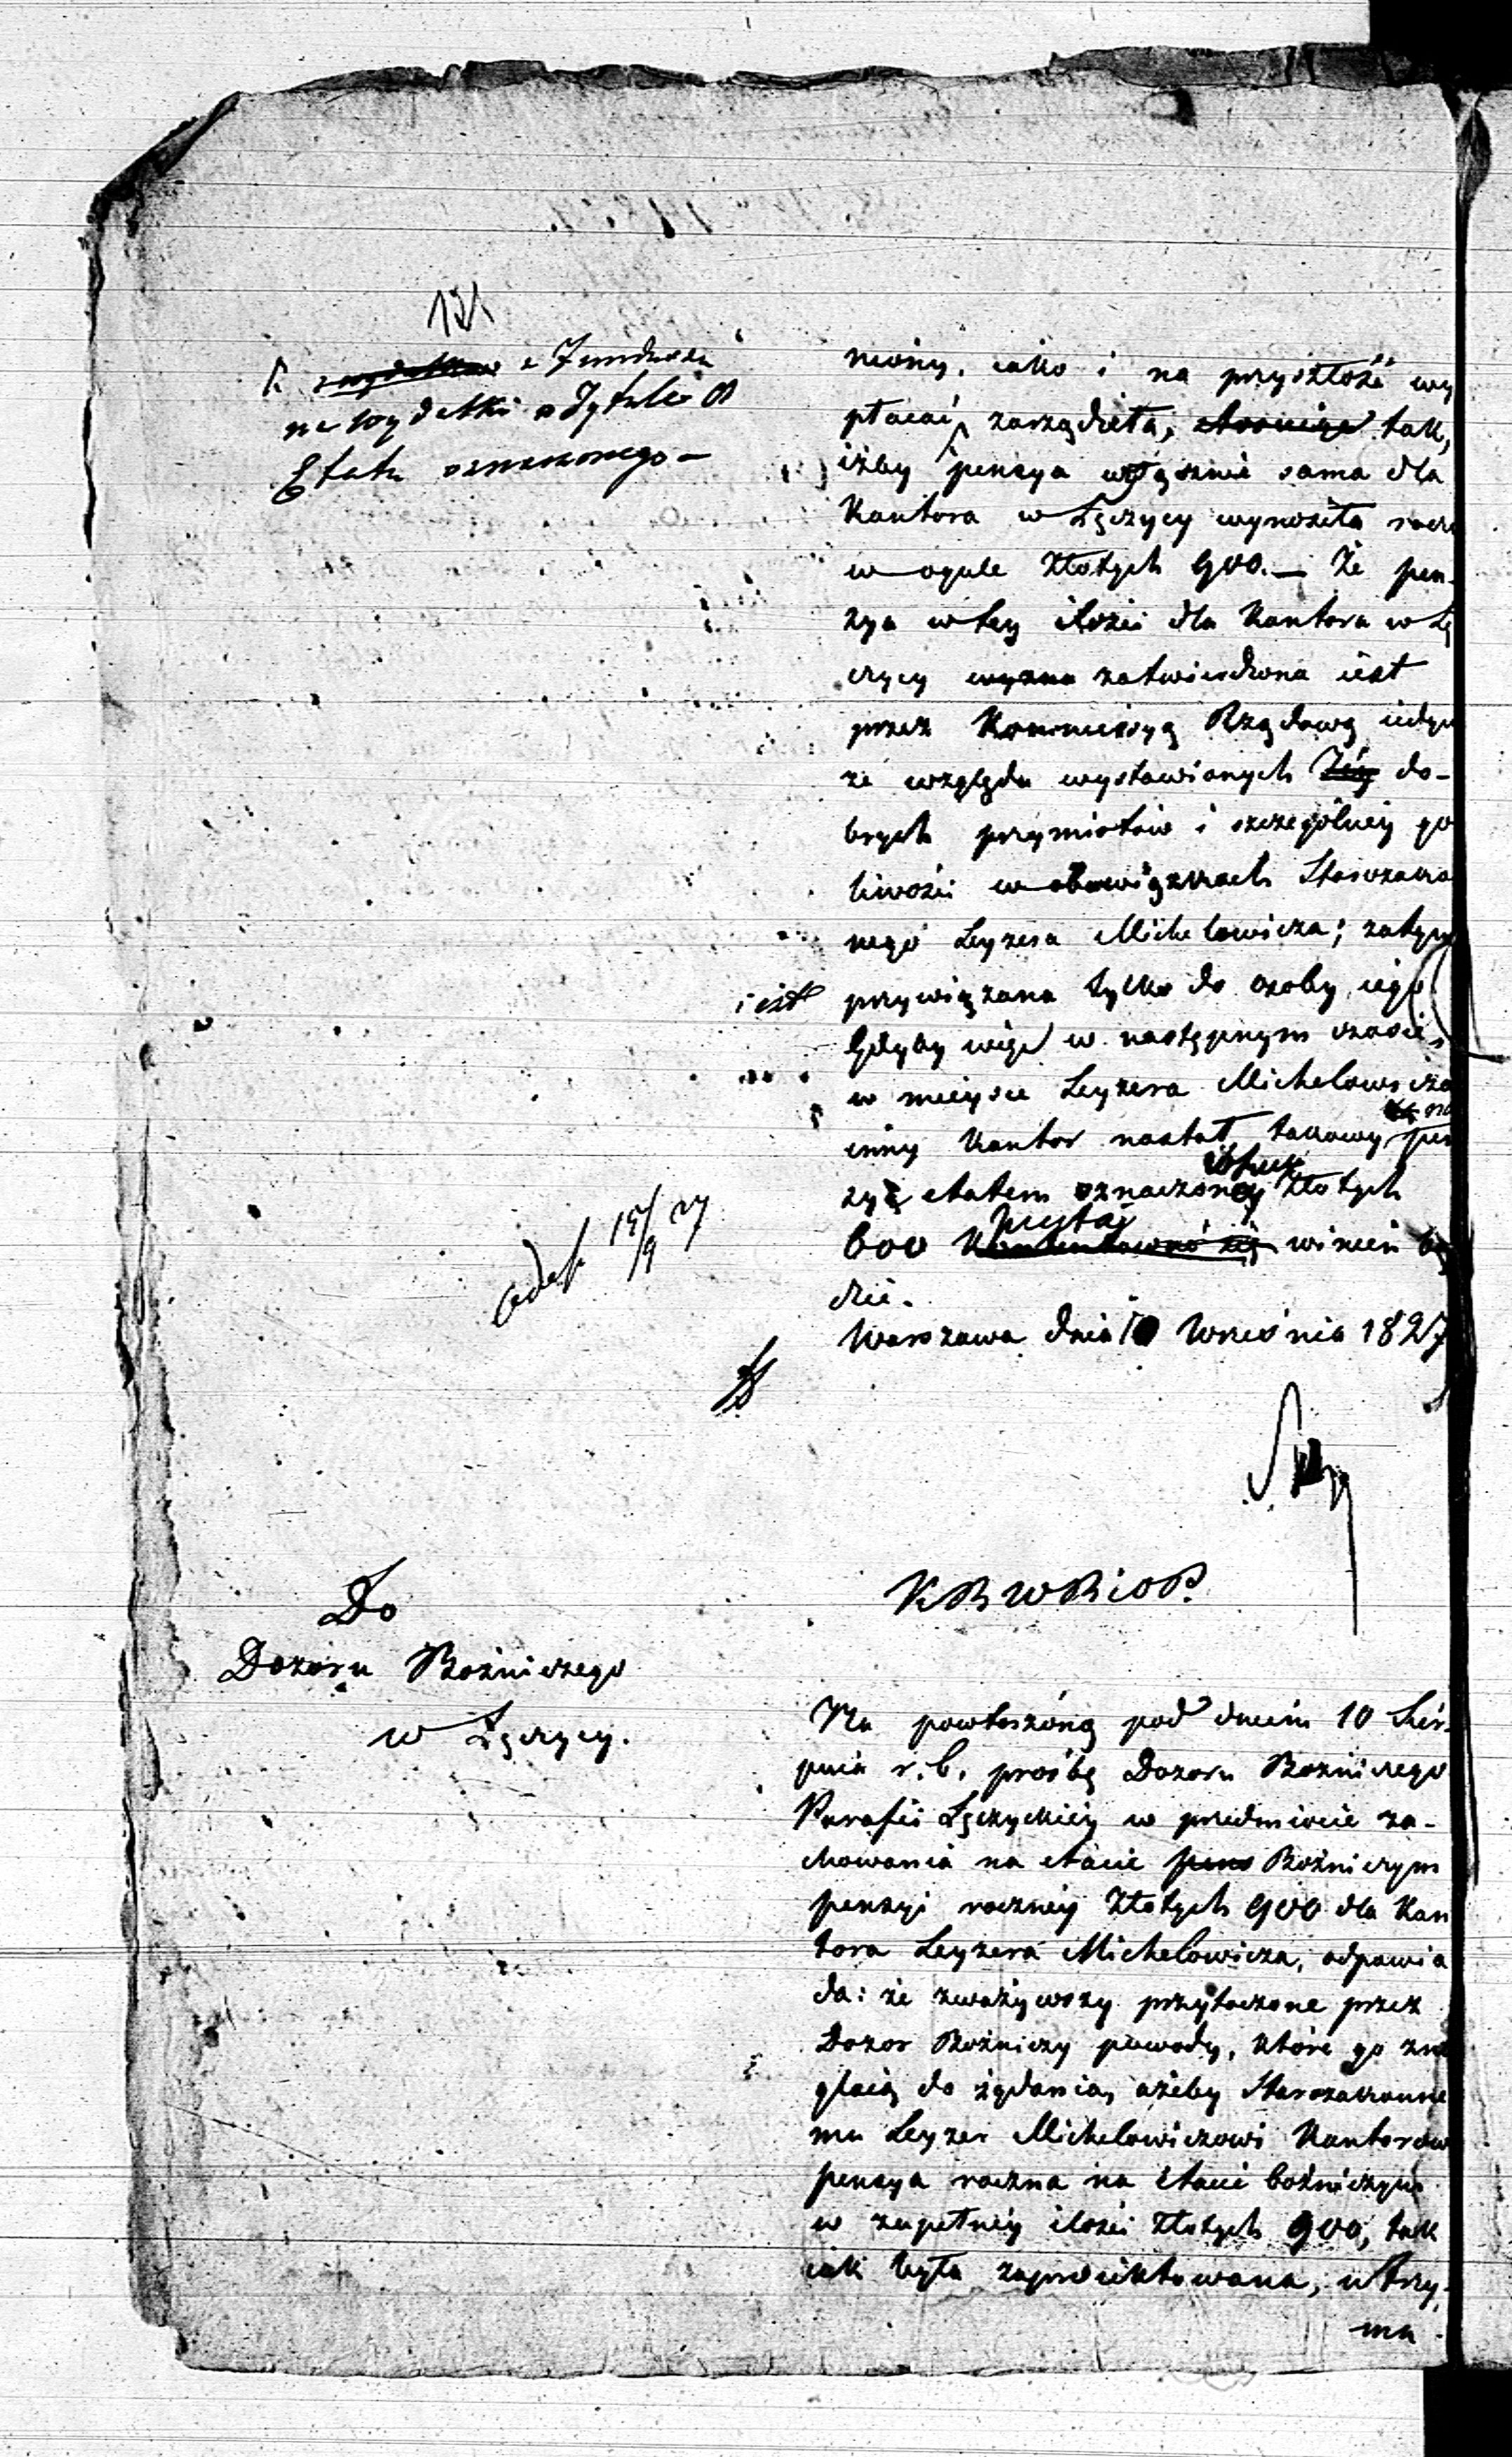 z Funduszu
na wydatki w Tytule
Etatu oznaczonego —
niony, iako i na przyszłość wy
płacać zarządziła, tak,
iżby pensya wyłącznie sama dla
Kantora w Łęczycy wynosiła rocz
w ogule Złotych 900. — Że pen-
zya w tey ilości dla Kantora w Łę
czycy zatwierdzona iest
przez Kommissyą Rządową iedyn
ze względu wystawionych do-
brych przymiotów i szczególney go
liwości w obowiązkach Starozako
nego Leyzera Michelowicza; zatym
iest
przywiązana tylko do osoby iego
Gdyby więc w następnym czasie,
w mieysce Leyzera Michelowicza
inny Kantor nastał, takowy pen
zyą etatem oznaczoney Złotych
600 winien bę
dzie.
Warszawa dnia 10 Września 1827
15/9 27
KRWRiOP.
Do
Dozoru Bożniczego
w Łęczycy.
Na powtorzóną pod dniem 10 Sier-
pnia r. b. prośbę Dozoru Bożniczego
Parafii Łęczyckiey w przedmiocie za-
chowania na etacie Bożniczym
pensyi roczney Złotych 900 dla Kan
tora Leyzera Michelowicza, odpowia
da: że zważywszy przytoczone przez
Dozor Bożniczy powody, które go zna
glaią do żądania, ażeby Starozakonne
mu Leyzer Michelowiczowi Kantorow
pensya roczna na etacie bożniczym
w zupełney ilości Złotych 900, tak
iak była zaproiektowana, utrzy-
ma